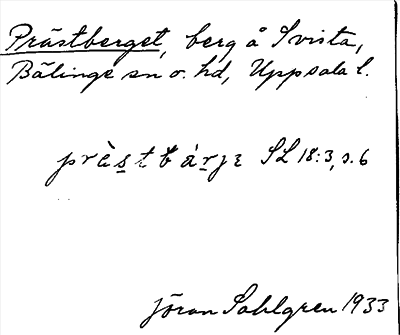 Prästberget, berg å Svista,
Bälinge sn o. hd, Uppsala l.
prὲstbárjɛ SL 18:3, s. 6
Jöran Sahlgren 1933